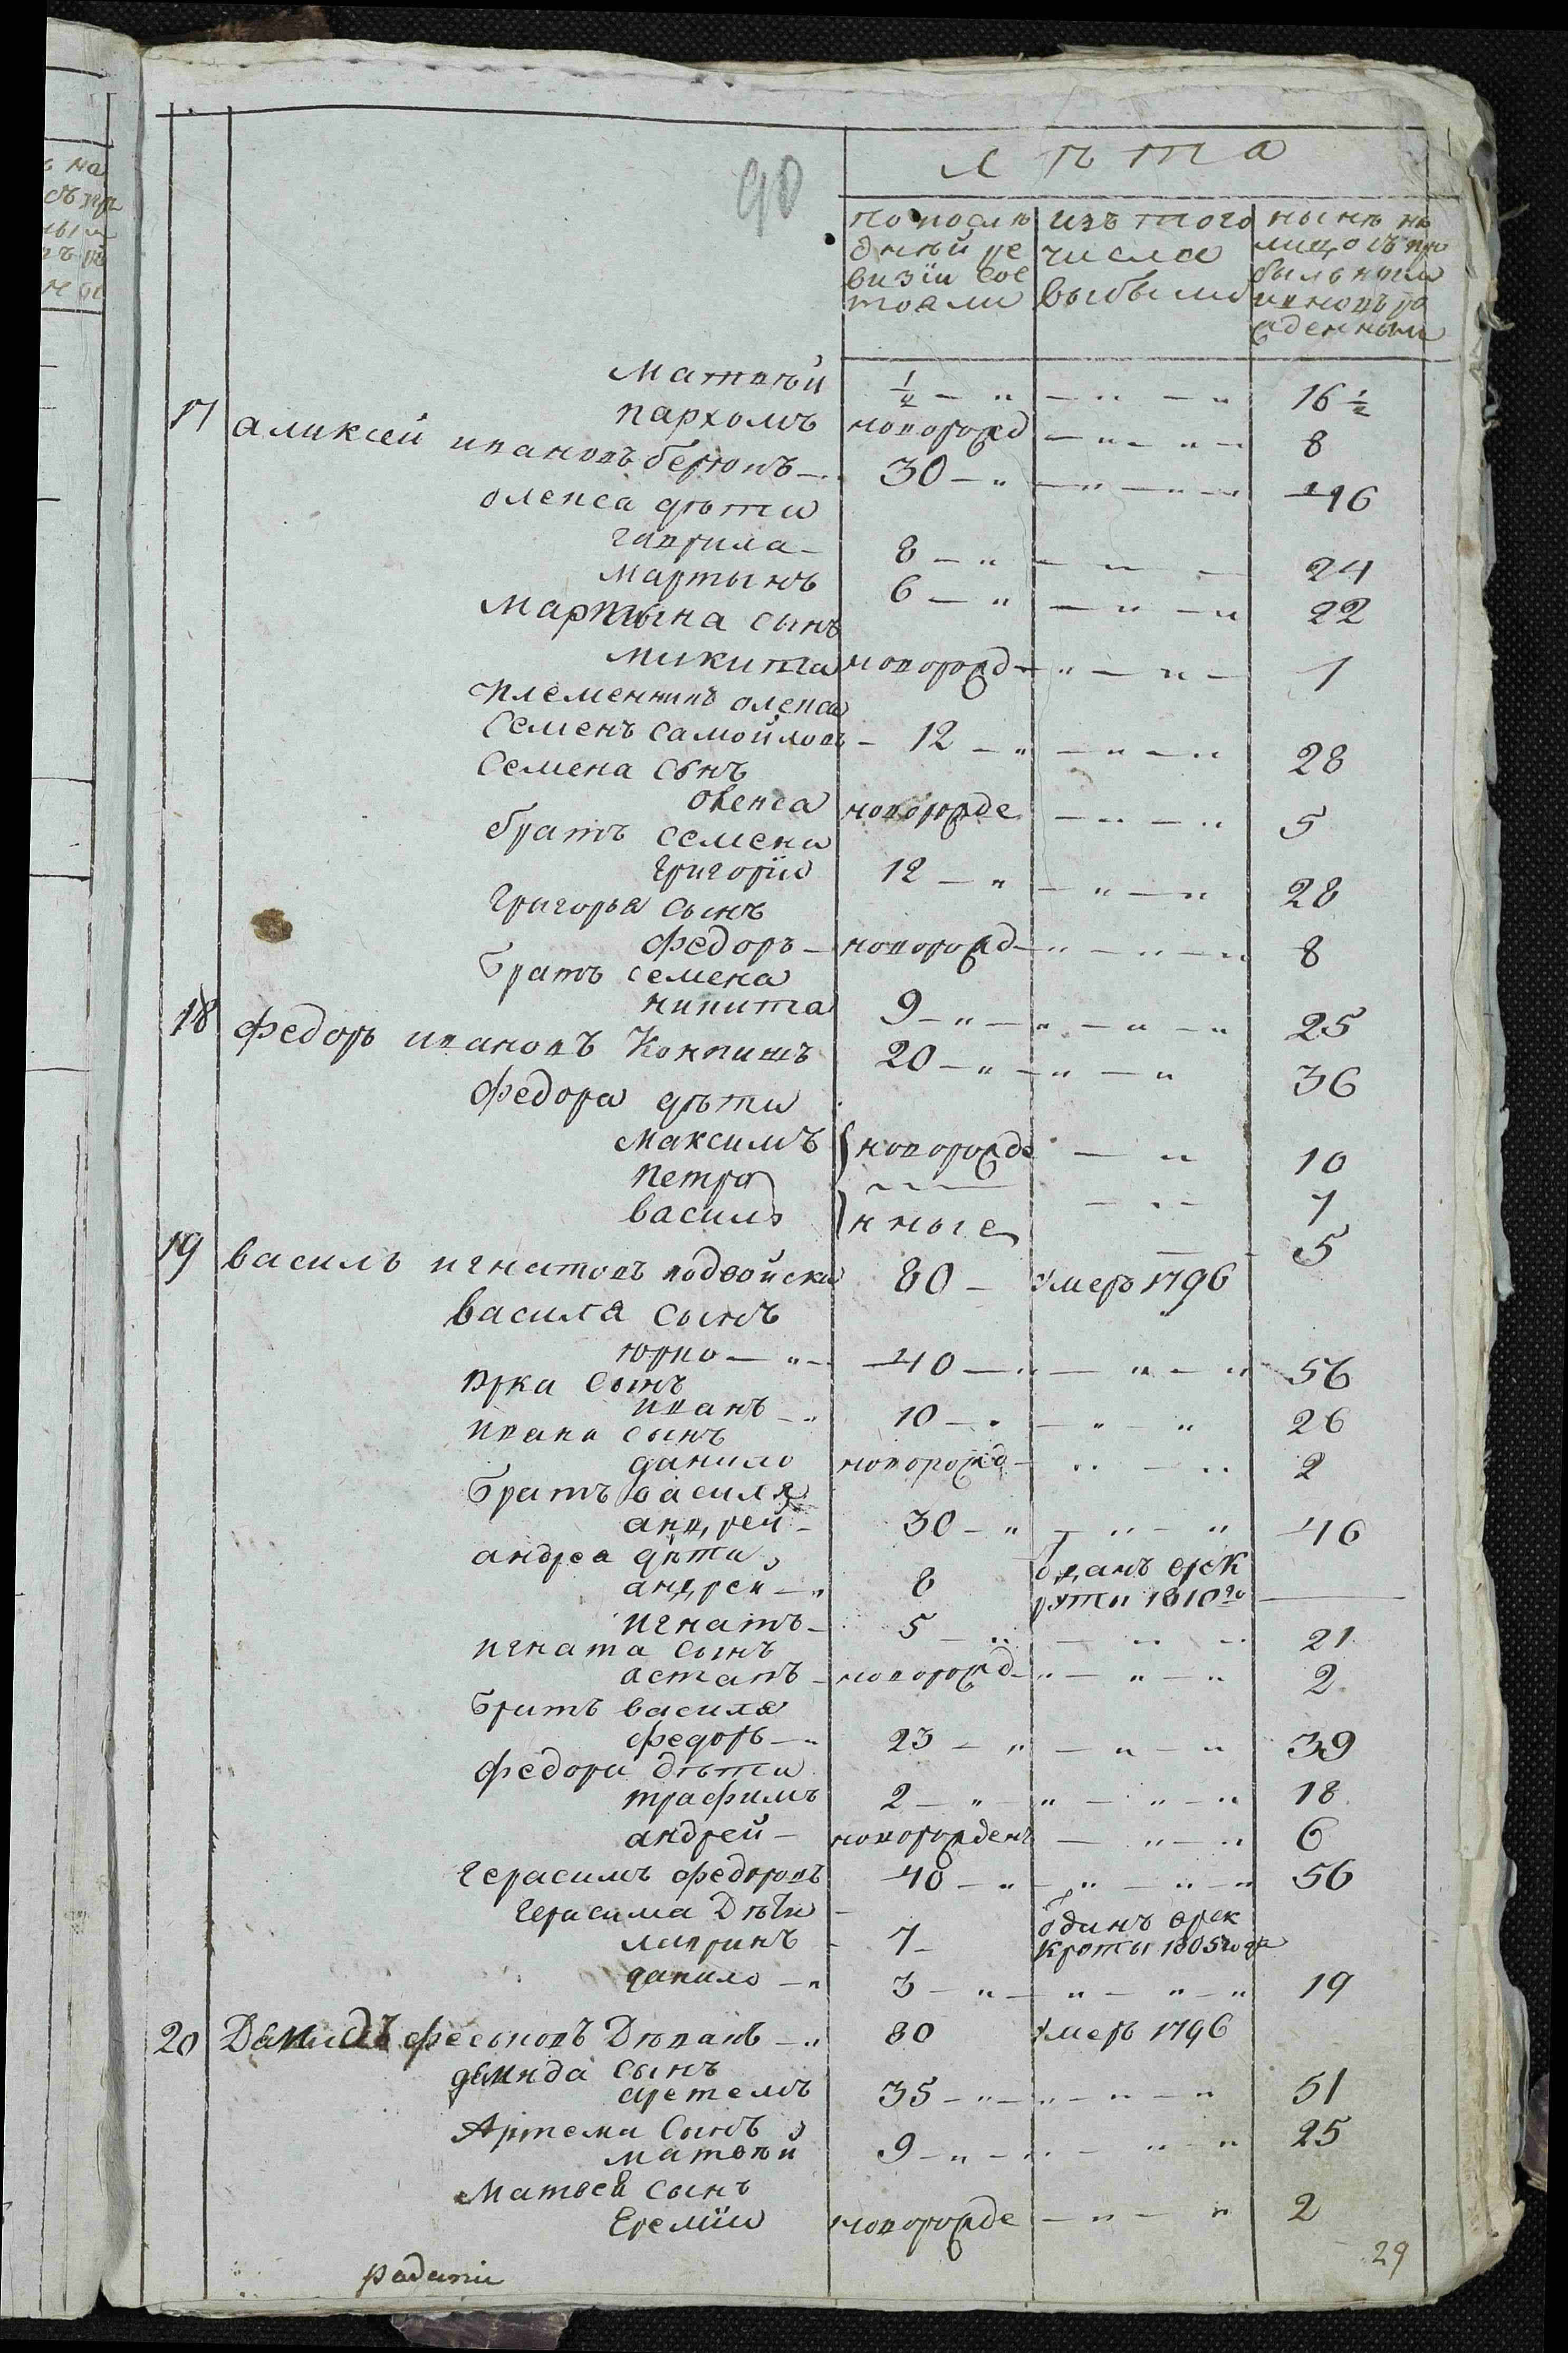 90
лѣта
по послѣ
дней ре
визiи сос
тояли
изъ того
числа
выбыли
нынѣ на
лицо съ при
былыми
и вновь ро
жденными
Матвѣй ½ — „ — „ — „ 16 ½
пархомъ новорожд — „ „ — 8
17 аликсей ивановъ берювъ — 30 — „ — „ — „ — 46
олекса дѣти
гаврила — 8 — „ — „ — 24
мартынъ 6 — „ — „ — „ 22
Мартына сынъ
микита новорожд — „ — „ — 1
племенникъ олекса
Семенъ самойловъ — 12 — „ — „ — „ 28
Семена сынъ
олекса новорожде — „ — „ 5
братъ семена
григорiй 12 — „ — „ — „ 28
григорья сынъ
федоръ — новорожд — „ — „ — „ 8
братъ семена
никита 9 — „ — „ — „ — „ 25
18 федоръ ивановъ 20 — „ — „ — „ 36
федора дѣти
Максимъ новорожде — „ 10
петра — „ — 7
василь нные — 5
19 василь игнатовъ подвойски 80 — умеръ 1796
василя сынъ
юрко — „ — 40 — „ — „ — „ 56
юрка сынъ
иванъ — „ 10 — „ — „ — „ 26
ивана сынъ
данило новорожд — „ — „ 2
братъ василя
андрей — 30 — „ — „ — „ 46
андрея дѣти
андрей — „ 8 отданъ врек
руты 1810го —
игнатъ — 5 — „ — „ — „ 21
игната сынъ
астапъ — новорожд — „ — „ — „ 2
братъ василя
федоръ — „ 23 — „ — „ — „ 39
федора дѣти
трафимъ 2 — „ — „ — „ — „ 18
андрей — новорожденъ — „ — „ 6
герасимъ федоровъ 40 — „ — „ — „ — „ 56
Герасима Дѣти —
лавринъ — 7 — одинъ врек
круты 1805 года
данило — „ 3 — „ — „ — „ — „ 19
20 Давидъ феськовъ — „ 80 умеръ 1796
давида сынъ
артемъ 35 — „ — „ — „ — „ 51
Артема сынъ
матвѣй 9 — „ — „ — „ — „ 25
Матвея сынъ
Еремiи новорожде — „ — „ 2
29